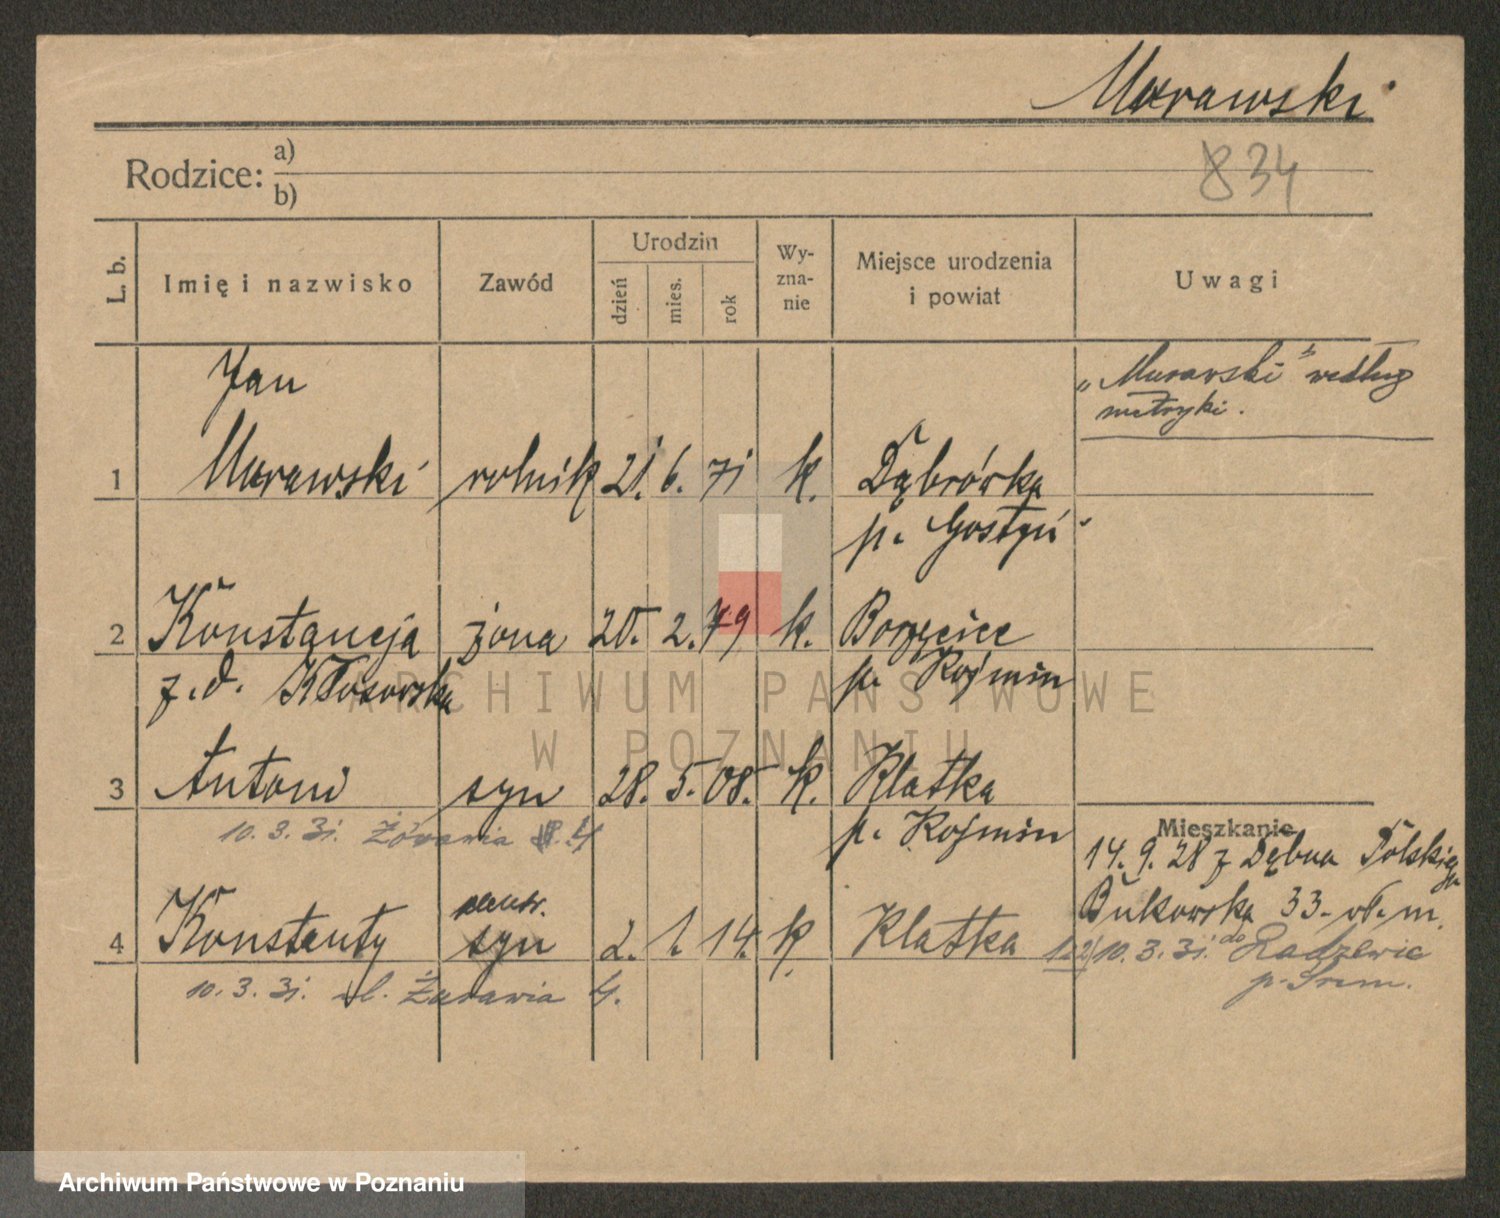 Morawski
Rodzice: a)
b)
834
L. b.
Imię i nazwisko
Zawód
Urodzin
dzień
mies.
rok
Wy-
zna-
nie
Miejsce urodzenia
i powiat
Uwagi
„Murawski" według
metryki.
Jan
1 Morawski rolnik 21. 6. 71 k. Dąbrówka
p. Gostyń
2 Konstancja żona 20. 2. 79 k. Borzęcice
z. d. Kłosowska p. Koźmin
3 Antoni syn 28. 5. 08. k. Klatka
10. 3. 31. 4 p. Koźmin
Mieszkanie
14. 9. 28 z Dębna Polskiego
Bukowska 33. m.
4 Konstanty syn 2. 1. 14. k. Klatka
1-2) 10. 3. 31. do Radzewic
p. Śrem.
10. 3. 31. ul. Żurawia 4.
ARCHIWUM PAŃSTWOWE
W POZNANIU
Archiwum Państwowe w Poznaniu